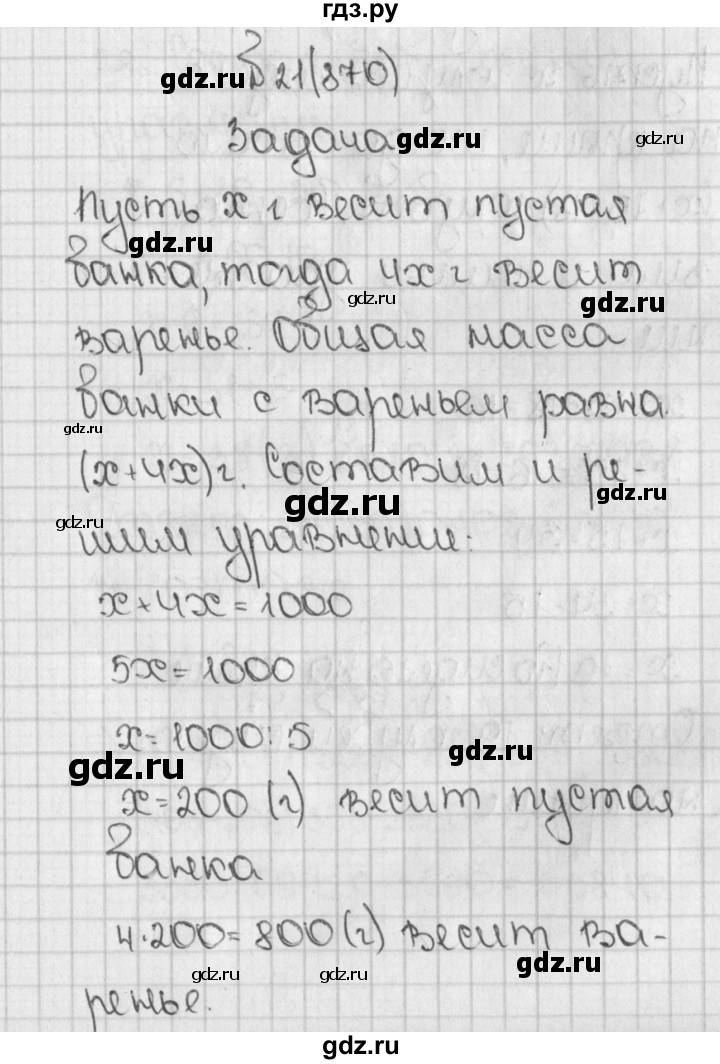 гдз.ру
gdz.ru
№ 21(870)
Задача gdz.ru
gdz.ru
Пусть x г весит пустая
gdz.ru
банка, тогда 4x г весит
gdz.ru gdz.ru
варенье. Общая масса
банки с вареньем равна
gdz.ru
(x+4x) г. Составим и ре-
gdz.ru
gdz.ru gdz.ru
шим уравнение:
x+4x=1000
5x=1000
x=1000:5
gdz.ru gdz.ru
x=200 (г) весит пустая
банка
4·200=800 (г) весит ва-
gdz.ru gdz.ru gdz.ru
ренье.
gdz.ru